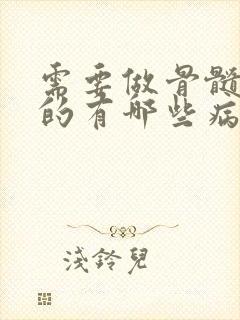 需要做骨髓
的有哪些病
淺鈴兒